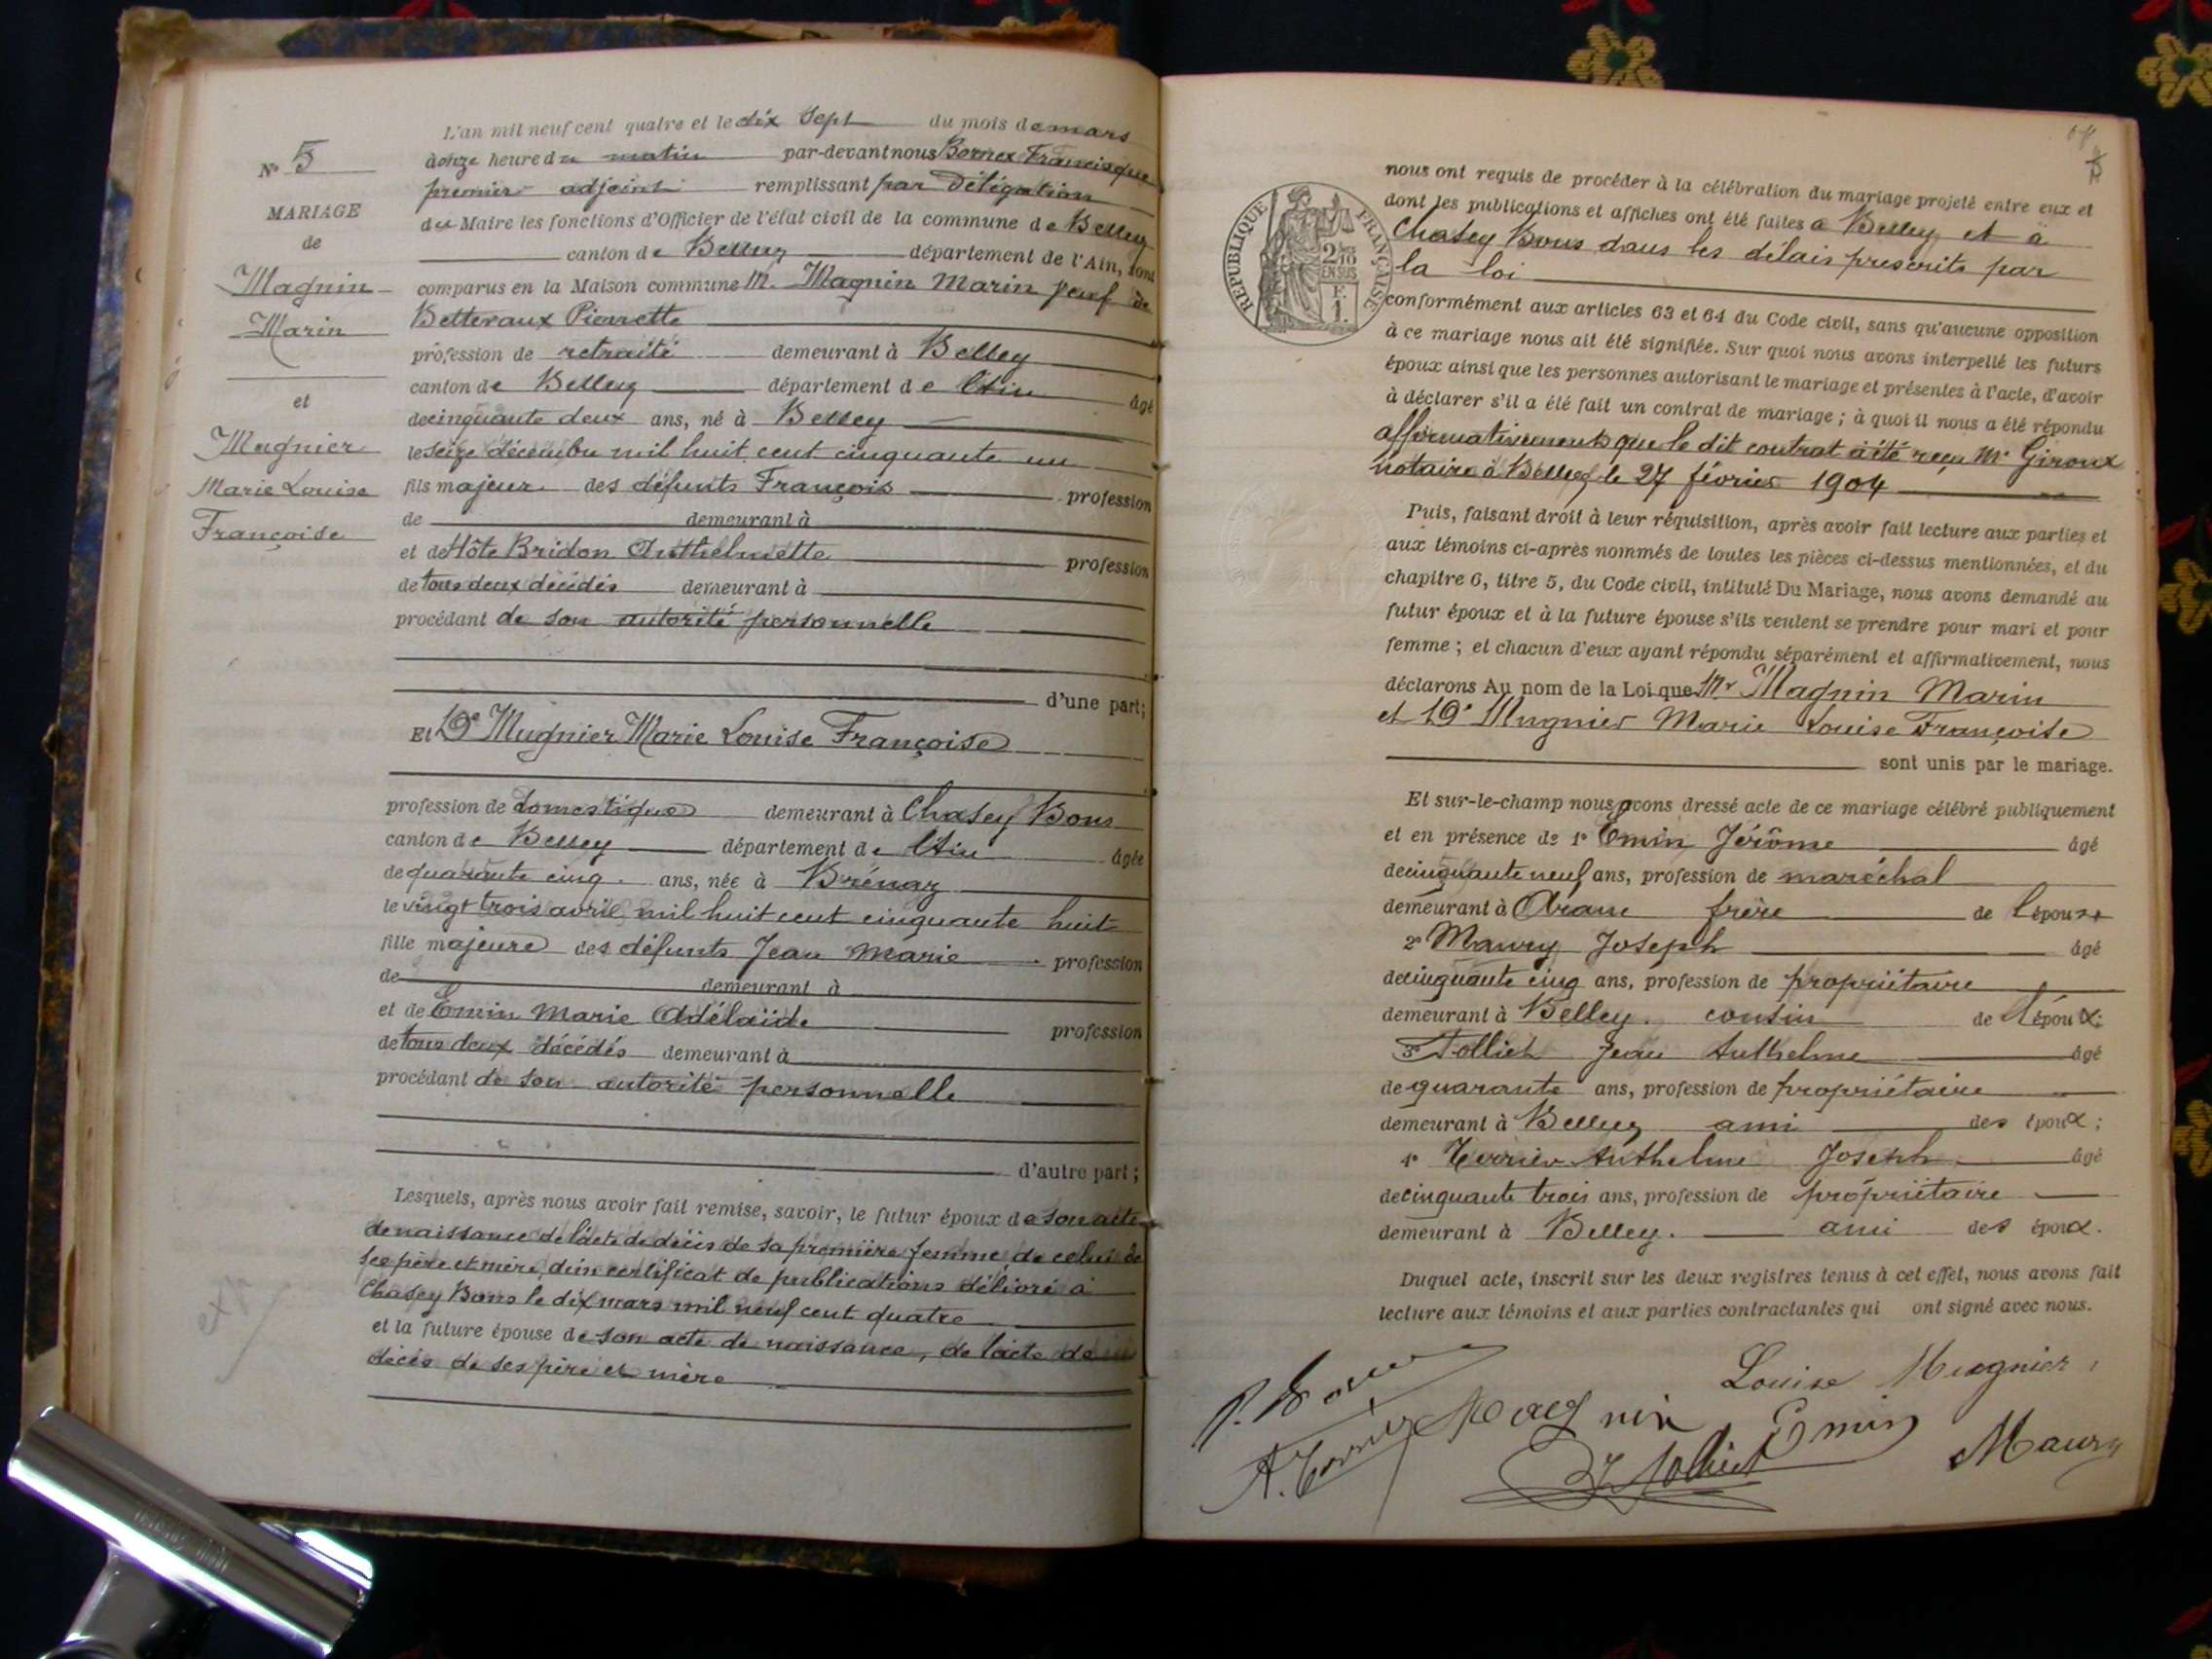 N° 5
MARIAGE
de
Magnin
Marin
et
Mugnier
Marie Louise
Françoise
L'an mil neuf cent quatre et le dix sept du mois de mars
à onze heure du matin par-devant nous Bornex Francisque
premier adjoint remplissant par Délégation
du Maire les fonctions d'Officier de l'état civil de la commune de Belley
canton de Belley département de l'Ain, sont
comparus en la Maison commune M. Magnin Marin veuf de
Betteraux Pierrette
profession de retraité demeurant à Belley
canton de Belley département de l'Ain âgé
de cinquante deux ans, né à Belley
le seize décembre mil huit cent cinquante un
fils majeur des défunts François profession
de demeurant à
et de Hôte Bridon Anthelmette profession
de tous deux décédés demeurant à
procédant de son autorité personnelle
d'une part;
Et De Mugnier Marie Louise Françoise
profession de domestique demeurant à Chasey Bons
canton de Belley département de l'Ain âgée
de quarante cinq ans, née à Brénaz
le vingt trois avril mil huit cent cinquante huit
fille majeure des défunts Jean Marie profession
de demeurant à
et de Emin Marie Adélaïde profession
de tous deux décédés demeurant à
procédant de son autorité personnelle
d'autre part;
Lesquels, après nous avoir fait remise, savoir, le futur époux de son acte
de naissance de l'acte de décès de sa première femme, de celui de
ses père et mère, d'un certificat de publications délivré à
Chasey Bons le dix mars mil neuf cent quatre
et la future épouse de son acte de naissance, de l'acte de
décès de ses père et mère
nous ont requis de procéder à la célébration du mariage projeté entre eux et
dont les publications et affiches ont été faites à Belley et à
Chasey Bons dans les délais prescrits par
la loi
RÉPUBLIQUE FRANÇAISE
2/10 EN SUS
F. 1.
conformément aux articles 63 et 64 du Code civil, sans qu'aucune opposition
à ce mariage nous ait été signifiée. Sur quoi nous avons interpellé les futurs
époux ainsi que les personnes autorisant le mariage et présentes à l'acte, d'avoir
à déclarer s'il a été fait un contrat de mariage; à quoi il nous a été répondu
affirmativement que le dit contrat a été reçu Me Giroux
notaire à Belley le 27 février 1904
Puis, faisant droit à leur réquisition, après avoir fait lecture aux parties et
aux témoins ci-après nommés de toutes les pièces ci-dessus mentionnées, et du
chapitre 6, titre 5, du Code civil, intitulé Du Mariage, nous avons demandé au
futur époux et à la future épouse s'ils veulent se prendre pour mari et pour
femme; et chacun d'eux ayant répondu séparément et affirmativement, nous
déclarons Au nom de la Loi que Mr Magnin Marin
et De Mugnier Marie Louise Françoise
sont unis par le mariage.
Et sur-le-champ nous avons dressé acte de ce mariage célébré publiquement
et en présence de 1° Emin Jérôme âgé
de cinquante neuf ans, profession de maréchal
demeurant à Arane frère de l'épouse
2° Maury Joseph âgé
de cinquante cinq ans, profession de propriétaire
demeurant à Belley. cousin de l'époux;
3° Tolliet Jean Anthelme âgé
de quarante ans, profession de propriétaire
demeurant à Belley ami des époux;
4° Terrier Anthelme Joseph âgé
de cinquante trois ans, profession de propriétaire
demeurant à Belley. ami des époux.
Duquel acte, inscrit sur les deux registres tenus à cet effet, nous avons fait
lecture aux témoins et aux parties contractantes qui ont signé avec nous.
Louise Mugnier
Magnin
Emin
Maury
A. Terrier
J Tolliet